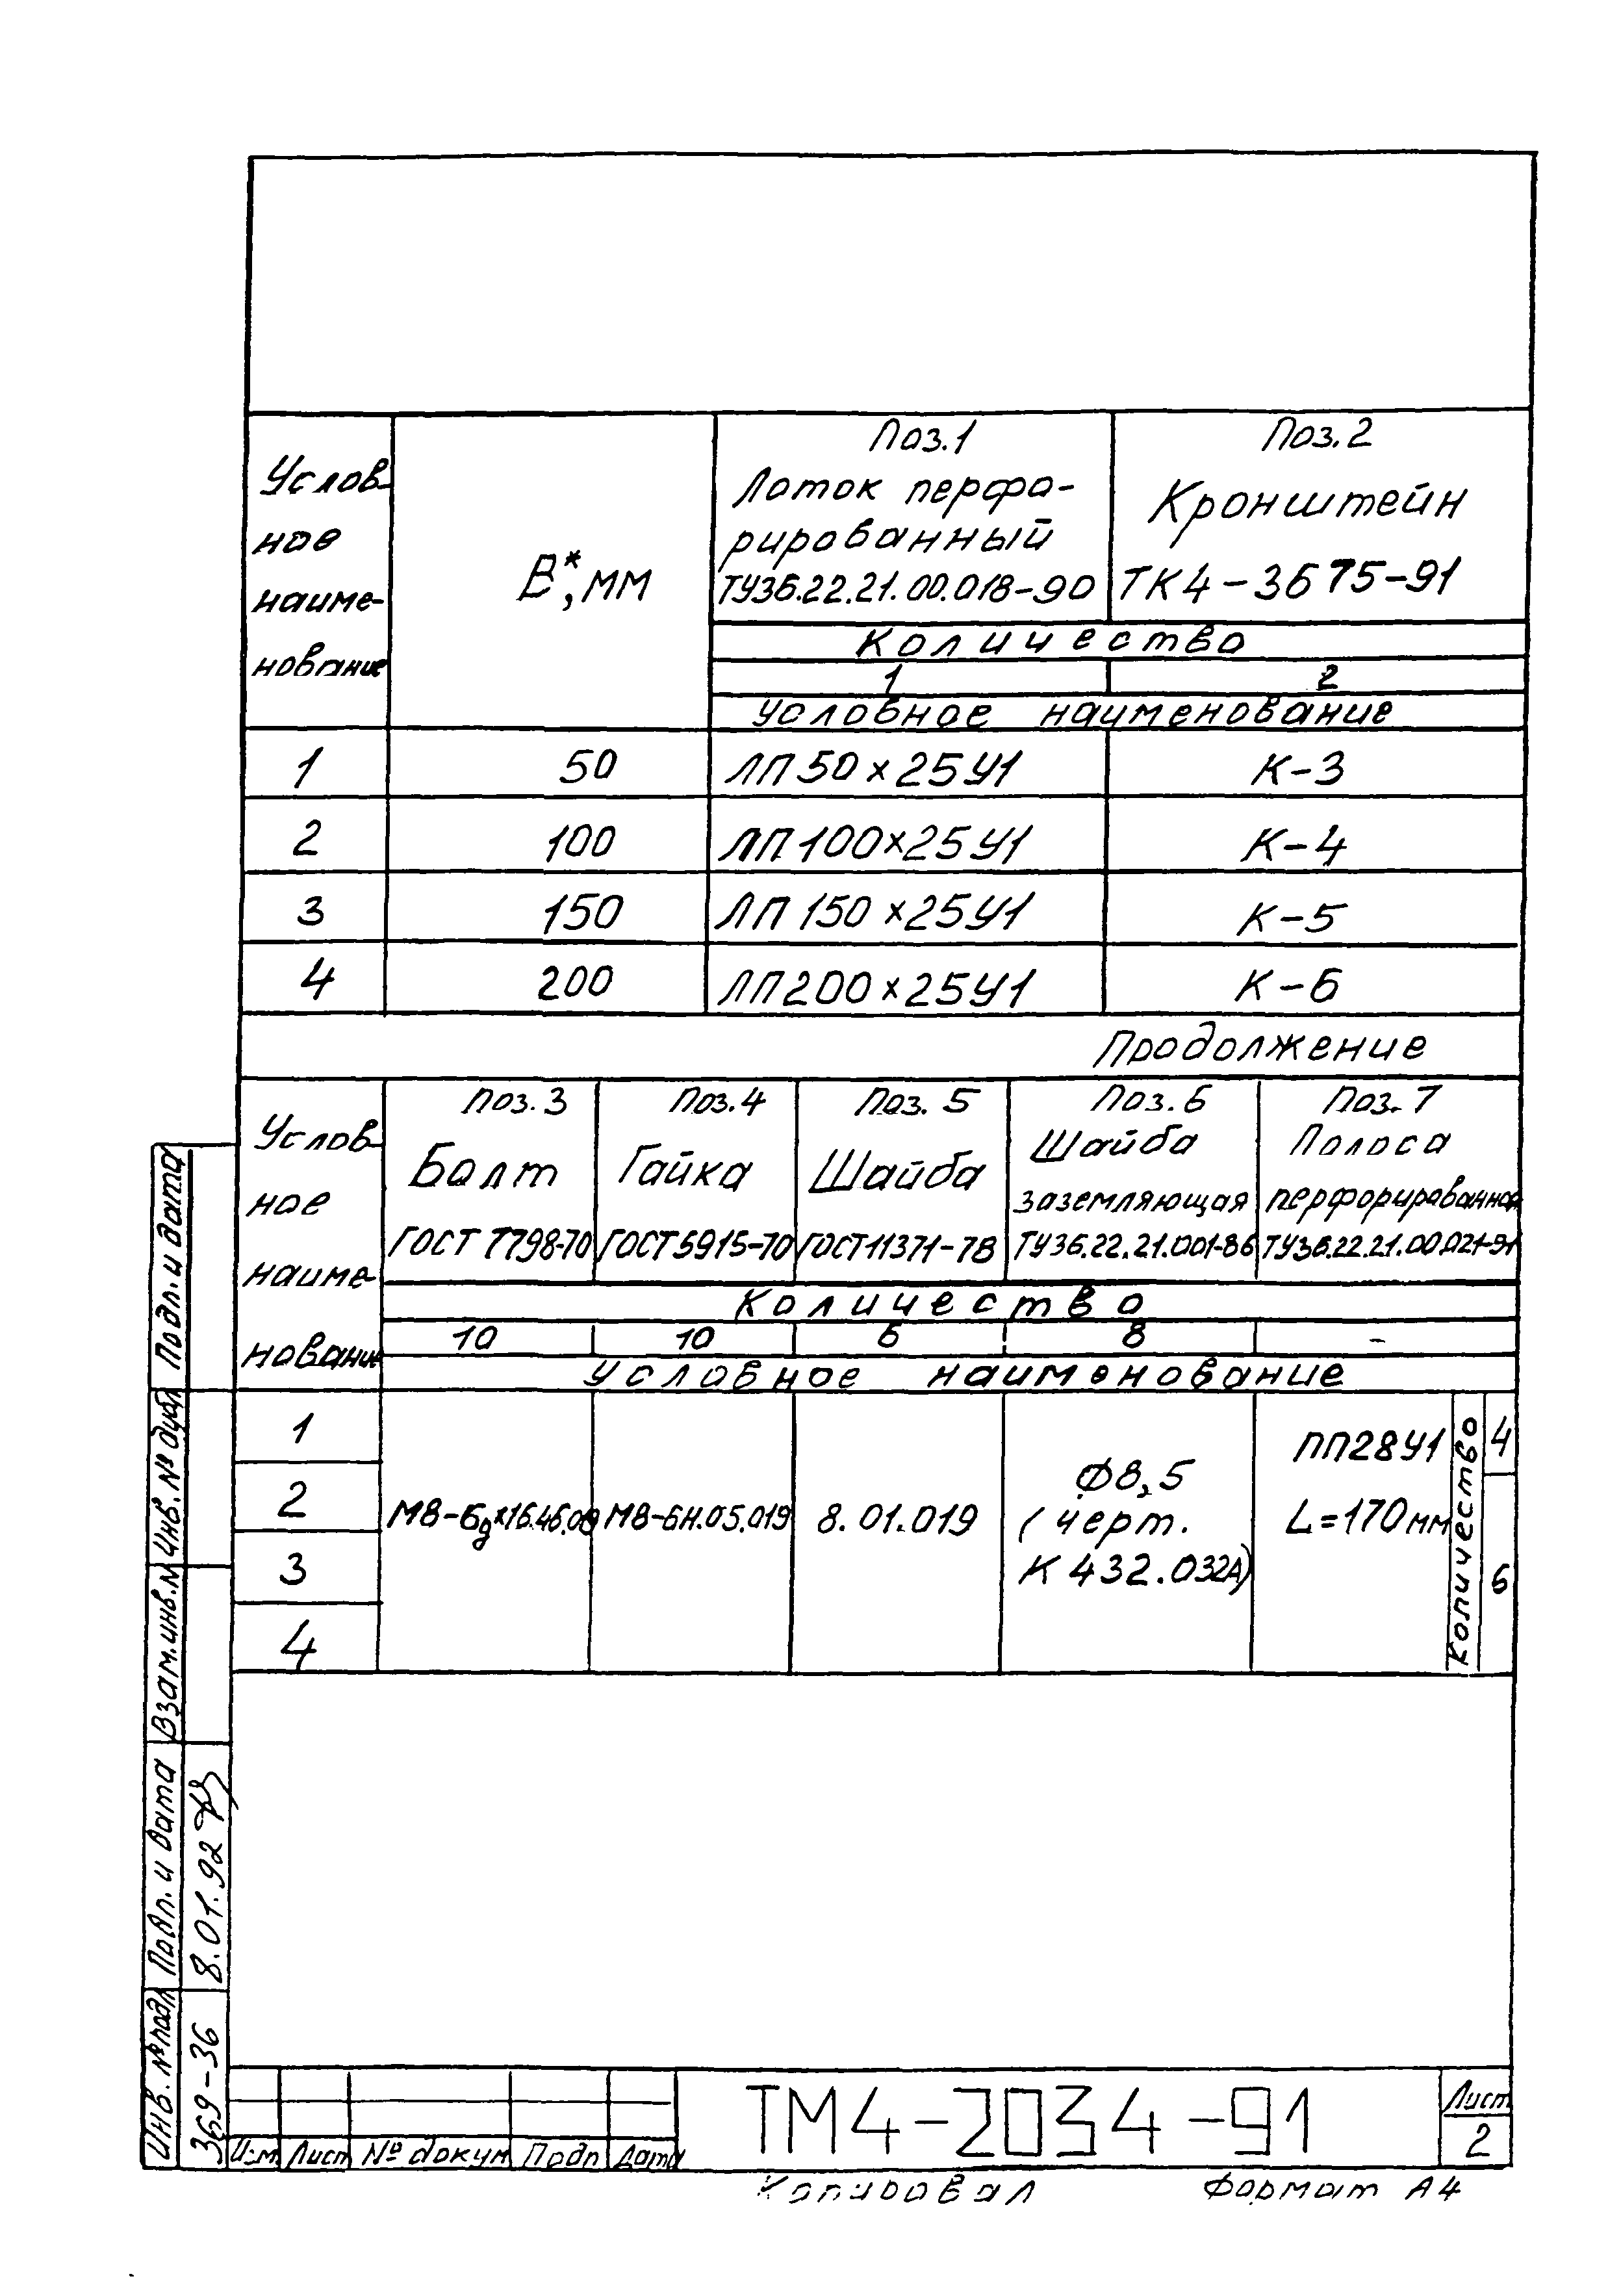 Услов-
ное
наиме-
нование
В*, мм
Поз.1
Лоток перфо-
рированный
ТУ36.22.21.00.018-90
Поз.2
Кронштейн
ТК4-3675-91
Количество
1 2
Условное наименование
1 50 ЛП50×25У1 К-3
2 100 ЛП100×25У1 К-4
3 150 ЛП150×25У1 К-5
4 200 ЛП200×25У1 К-6
Продолжение
Услов-
ное
наиме-
нование
Поз.3
Болт
ГОСТ 7798-70
Поз.4
Гайка
ГОСТ5915-70
Поз. 5
Шайба
ГОСТ11371-78
Поз.6
Шайба
заземляющая
ТУ36.22.21.001-86
Поз. 7
Полоса
перфорированная
ТУ36.22.21.00.021-91
Количество
10 10 6 8 -
Условное наименование
1
2
3
4
М8-6g×16.46.019
М8-6Н.05.019
8.01.019
Ф8,5
(черт.
К 432.032А)
ПП28У1
L=170мм
Количество
4
6
Подл. и дата
Инв. № дубл
Взам.инв.№
Подп. и дата
8.01.92
Инв. № подл
369-36
Изм Лист № докум Подп Дата
ТМ4-2034-91
Лист
2
Копировал Формат А4